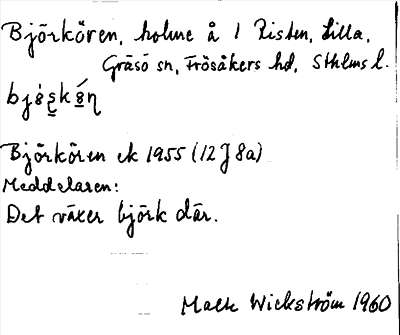 Björkören, holme å 1 Risten, Lilla,
Gräsö sn, Frösåkers hd, Sthlms l.
Björkören ek 1955 (12 J 8a)
Meddelaren:
Det växer björk där.
Wickström 1960